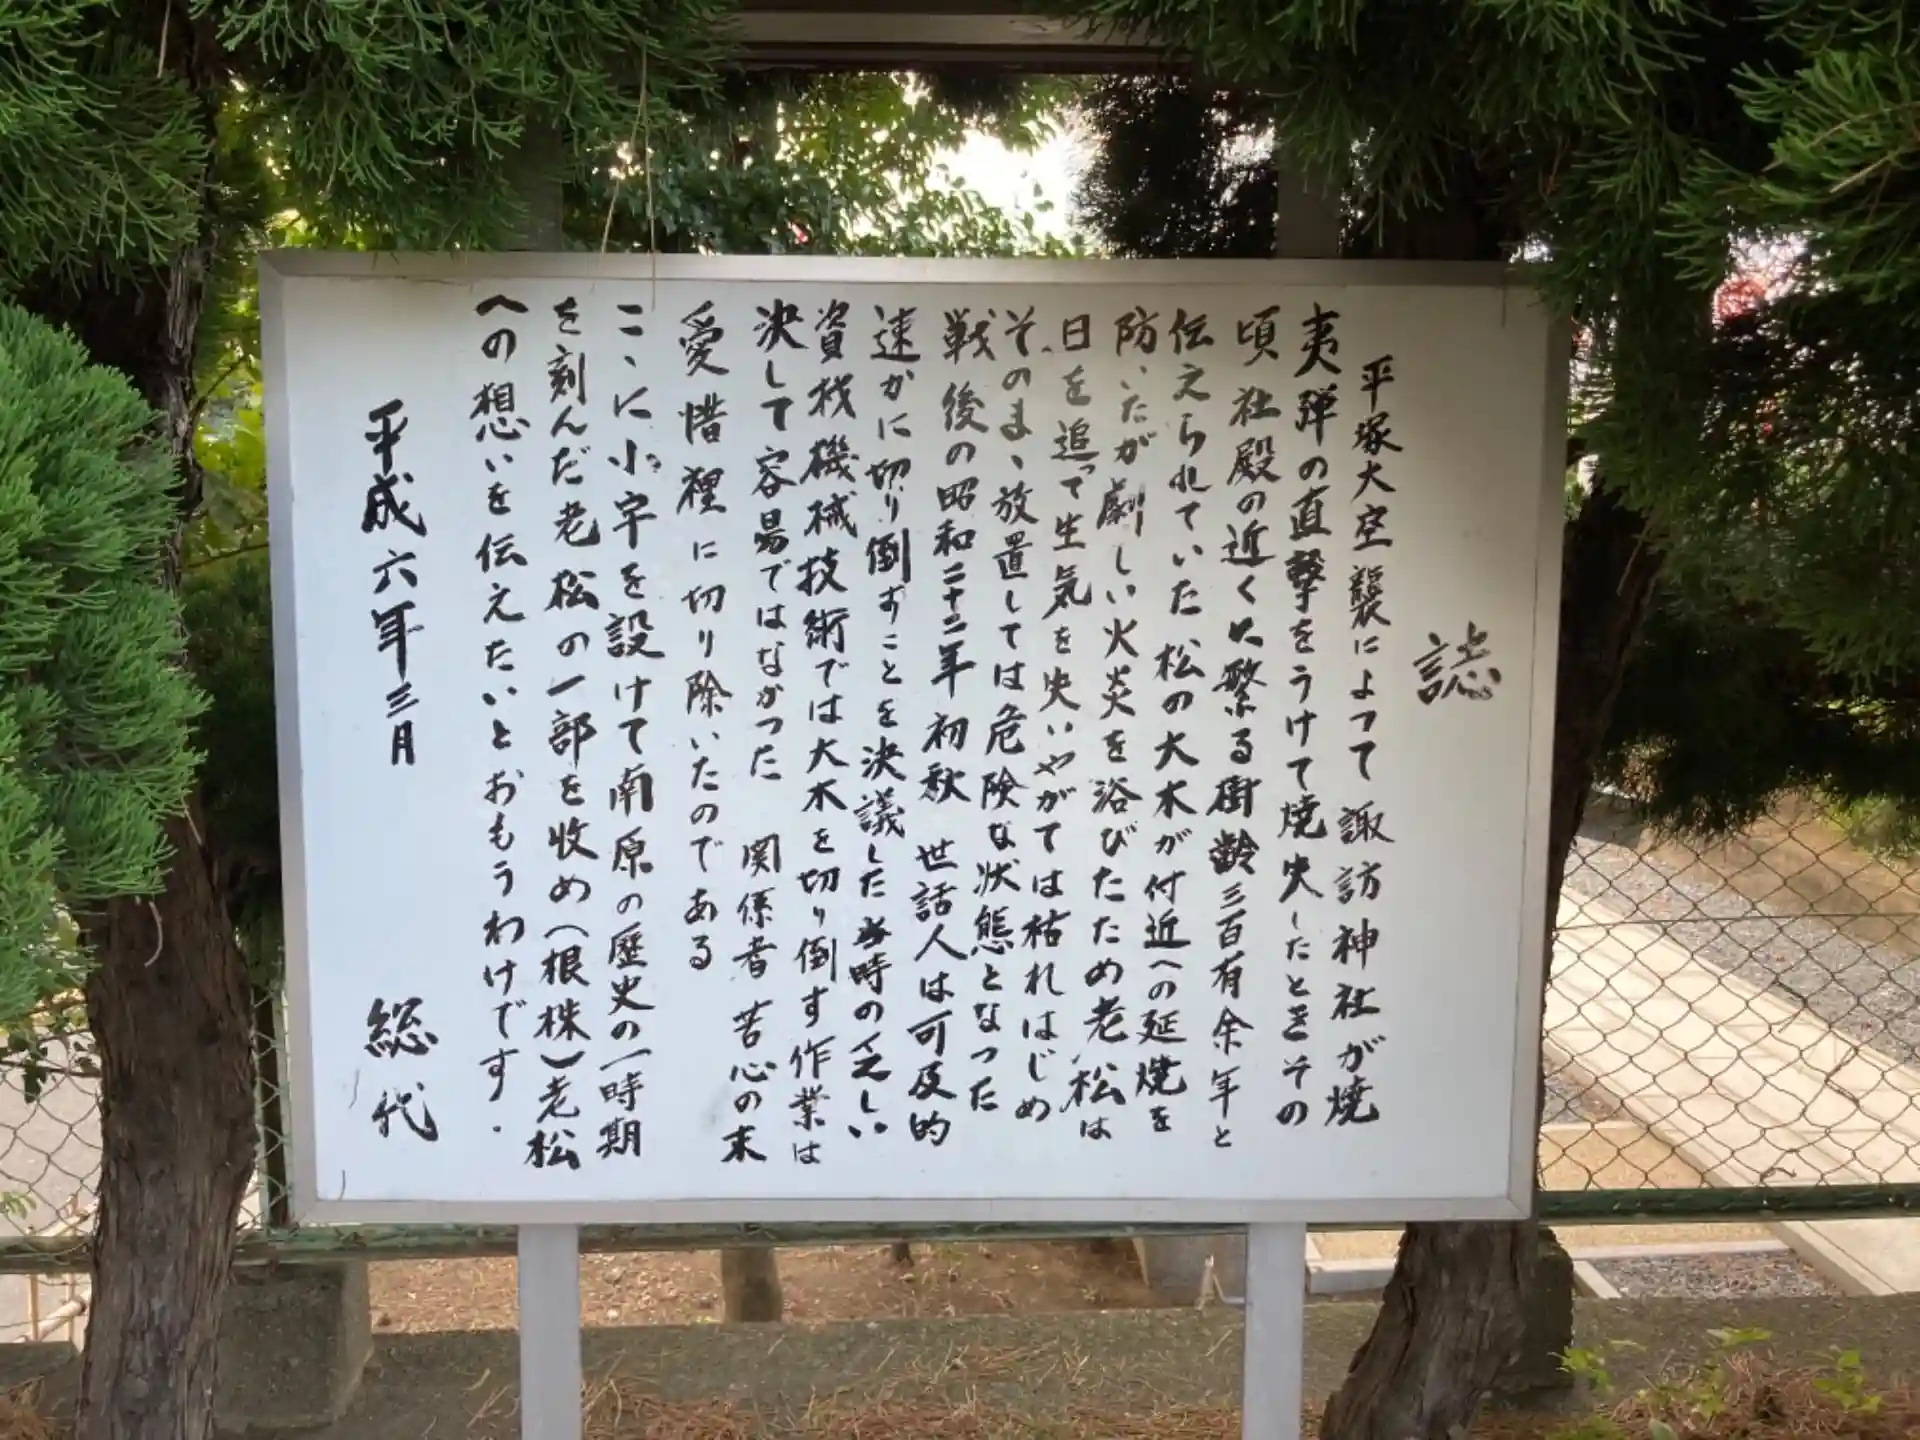 誌
平塚大空襲によって諏訪神社が焼
夷弾の直撃をうけて焼失したときその
頃社殿の近くに繁る樹齢三百有余年と
伝えられていた松の大木が付近への延焼を
防いだが劇しい火炎を浴びたため老松は
日を追って生気を失いやがては枯れはじめ
そのまゝ放置しては危険な状態となった
戦後の昭和二十二年初秋 世話人は可及的
速かに切り倒すことを決議した当時の乏しい
資材機械技術では大木を切り倒す作業は
決して容易ではなかった 関係者苦心の末
愛惜裡に切り除いたのである
こゝに小宇を設けて南原の歴史の一時期
を刻んだ老松の一部を収め(根株)老松
への想いを伝えたいとおもうわけです.
平成六年三月 総代